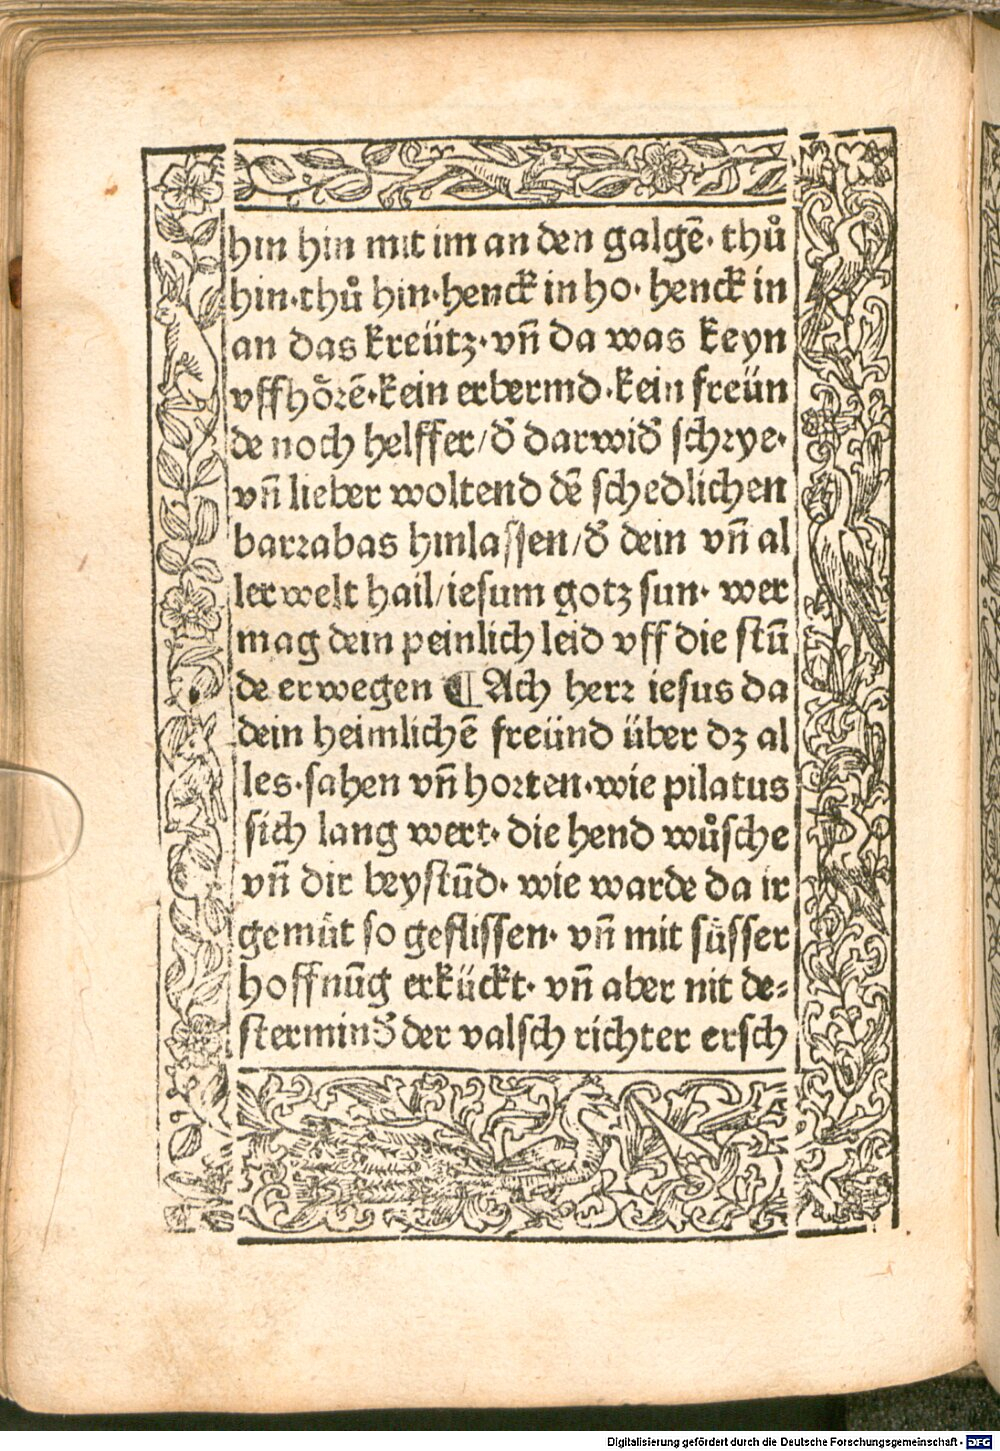 hin hin mit im an den galgē· thů
hin·thů hin·henck in ho· henck in
an das kreütz·vn̄ da was keyn
vffhoͤrē·kein erbermd·kein freün
de noch helffer/d̄ darwid̄ schrye·
vn̄ lieber woltend dē schedlichen
barrabas hinlassen/d̄ dein vn̄ al
ler welt hail/iesum gotz sun· wer
mag dein peinlich leid vff die stū
de erwegen ¶ Ach herr iesus da
dein heimlichē freünd über dz al
les·sahen vn̄ horten·wie pilatus
sich lang wert· die hend wůsche
vn̄ dir beystūd· wie warde da ir
gemüt so geflissen· vn̄ mit süsser
hoffnūg erkückt· vn̄ aber nit de-
stermind̄ der valsch richter ersch
Digitalisierung gefördert durch die Deutsche Forschungsgemeinschaft - DFG